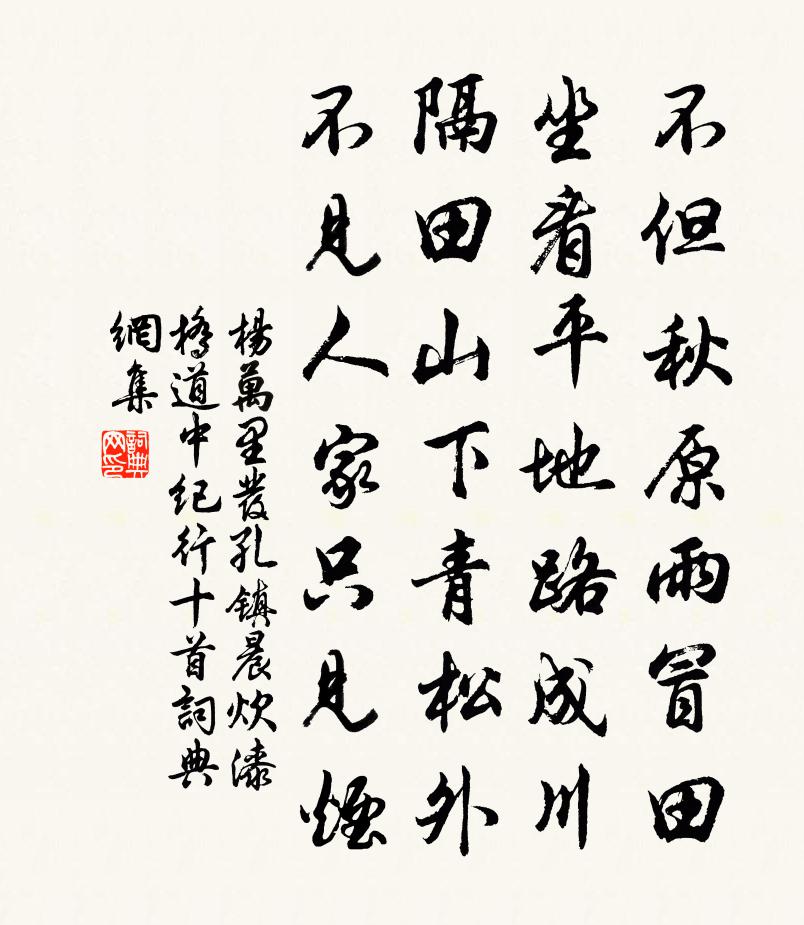 不但秋原雨冒田
坐看平地路成川
隔田山下青松外
不見人家只見煙
楊萬里發孔鎮晨炊漆
橋道中紀行十首詞典
網集
詞典
网印